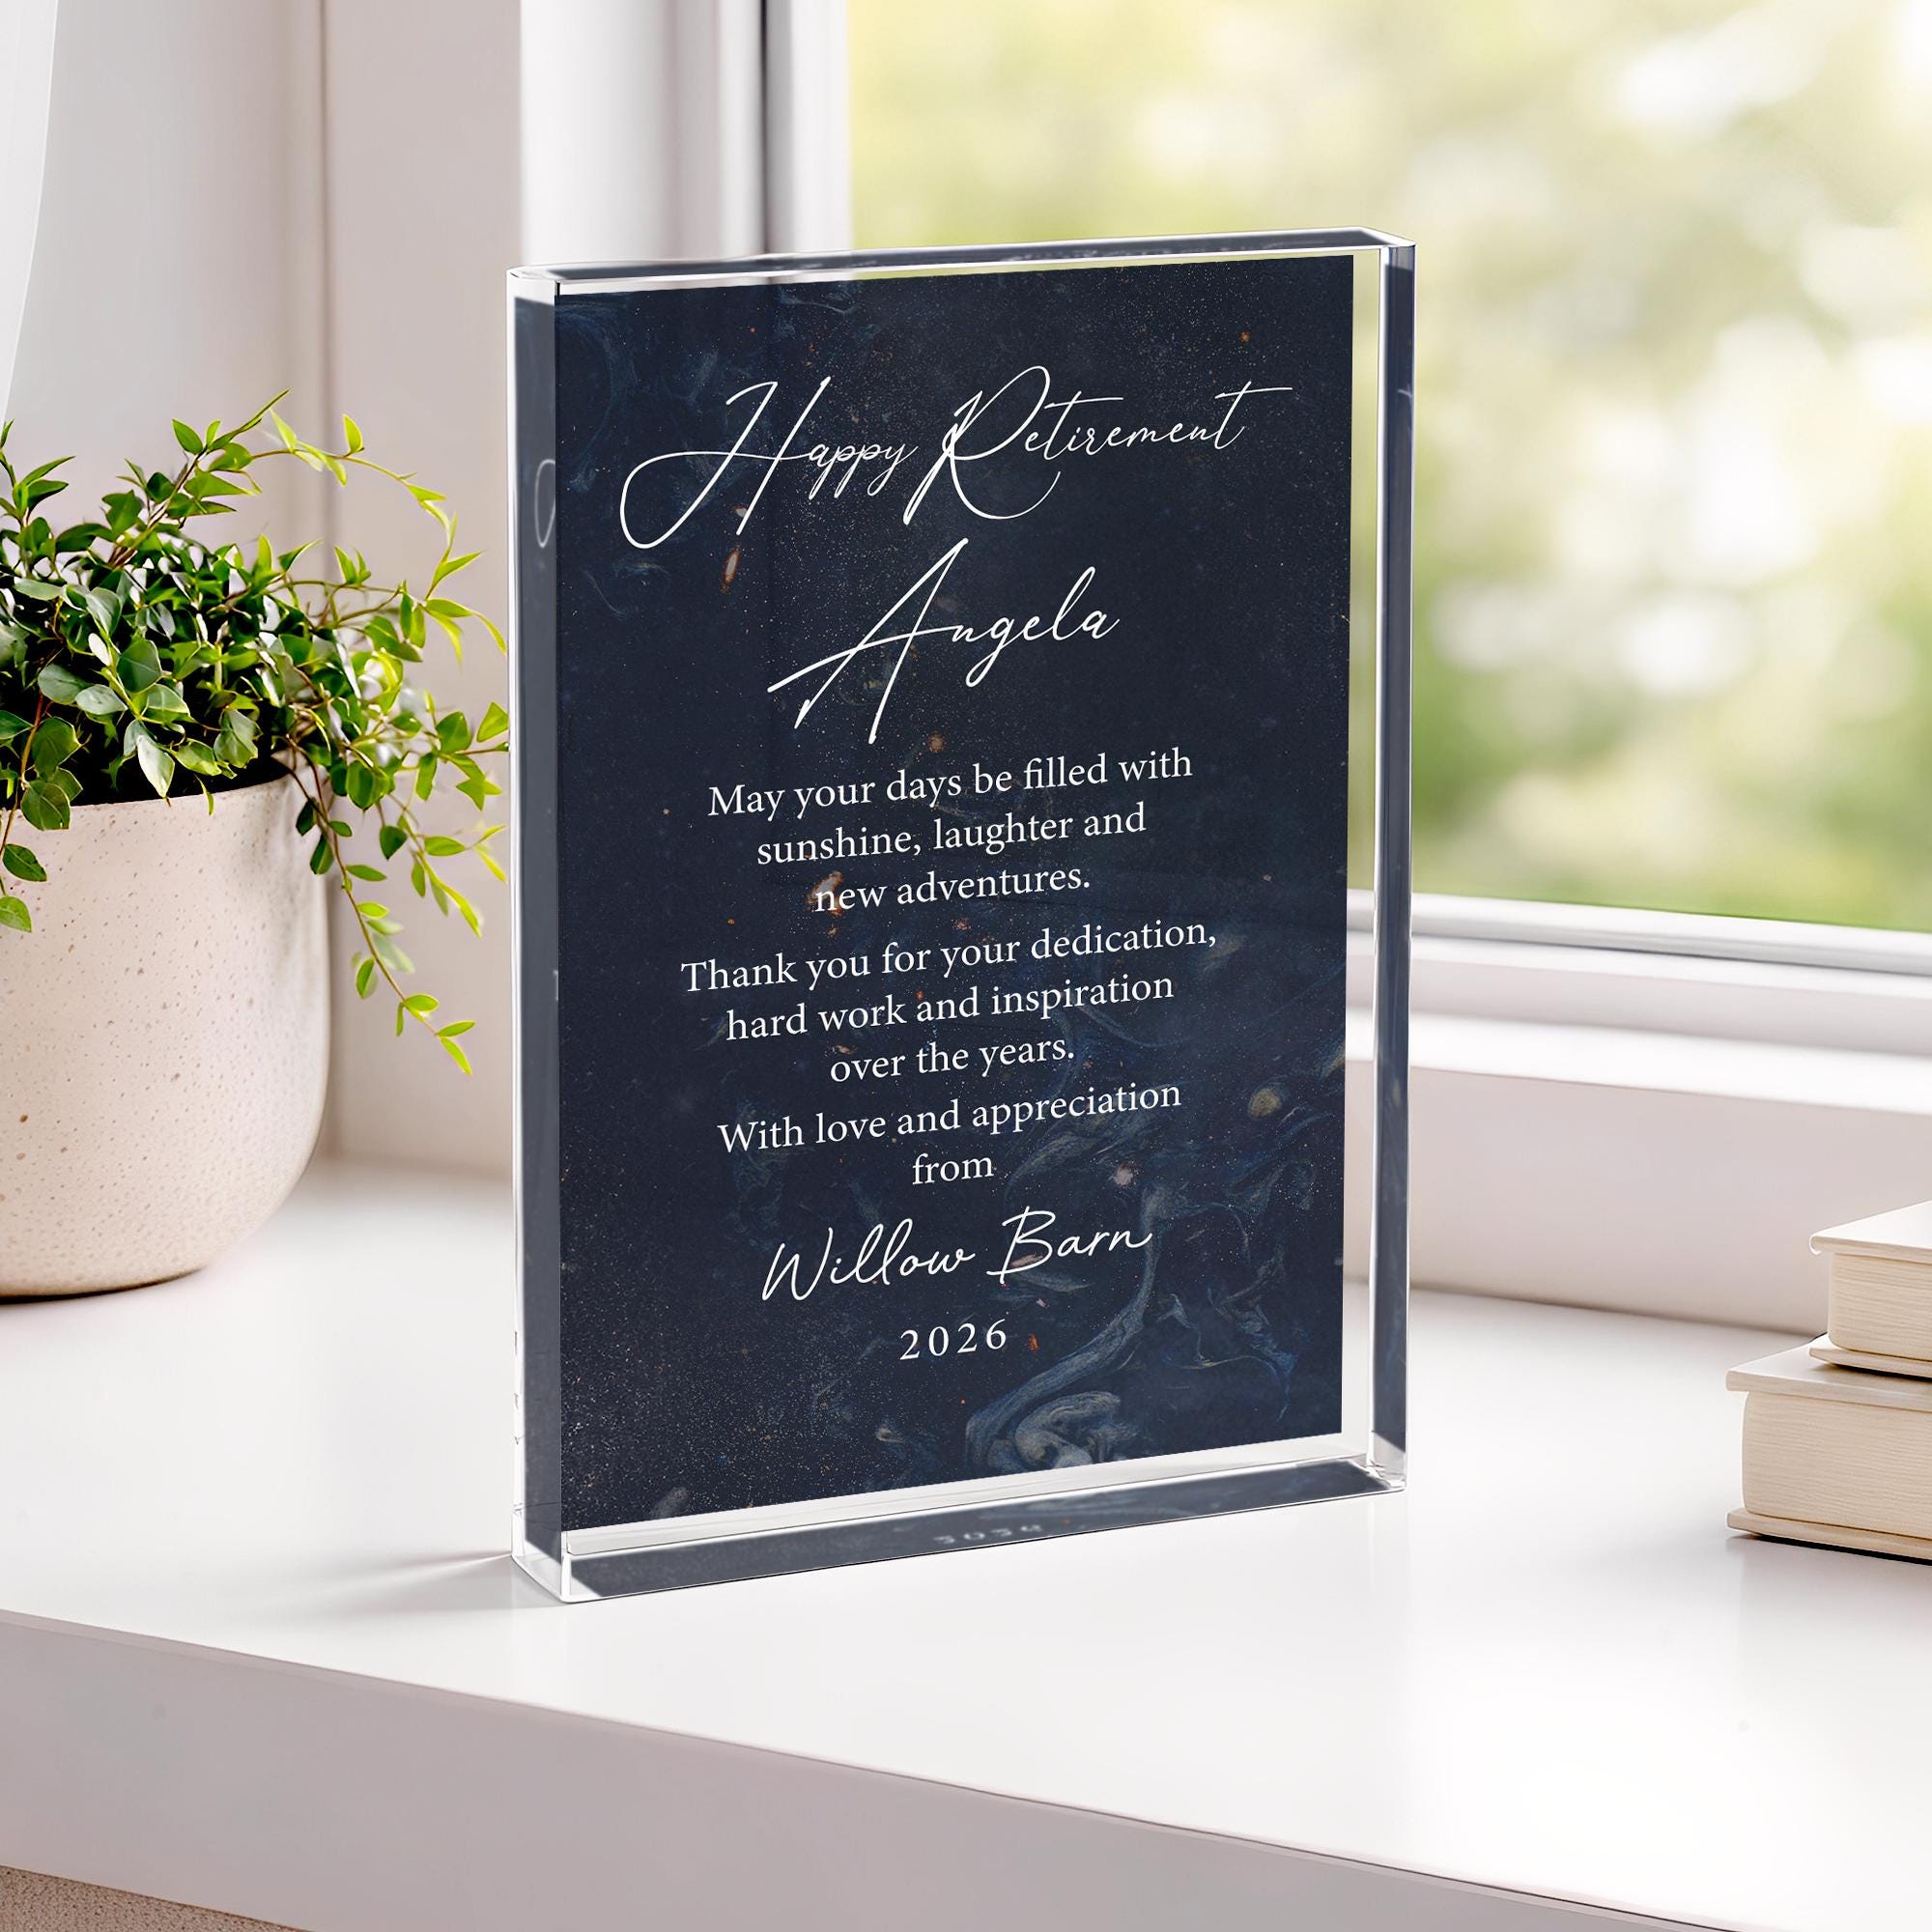 Happy Retirement
Angela
May your days be filled with
sunshine, laughter and
new adventures.
Thank you for your dedication,
hard work and inspiration
over the years.
With love and appreciation
from
Willow Barn
2026